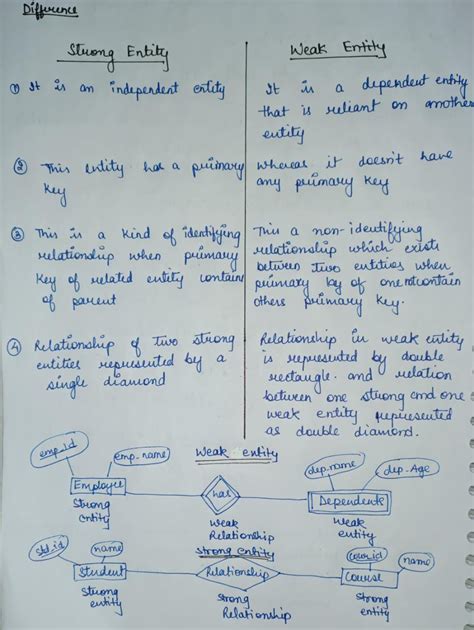 Difference
Strong Entity
Weak Entity
① It is an independent entity
It is a dependent entity
that is reliant on another
entity
② This entity has a primary
key
whereas it doesn't have
any primary key
③ This is a kind of identifying
relationship when primary
key of related entity contains
of parent
This a non-identifying
relationship which exists
between two entities when
primary by of one not contain
others primary key.
④ Relationship of two strong
entities represented by a
single diamond
Relationship in weak entity
is represented by double
rectangle. and relation
between one strong and one
weak entity represented
as double diamond.
Weak entity
emp_id
emp_name
dep.name
dep.Age
Employee
has
Dependents
Strong
entity
Weak
Relationship
Weak
entity
Strong entity
std_id
name
cour_id
name
Student
Relationship
Course
Strong
entity
Strong
Relationship
Strong
entity